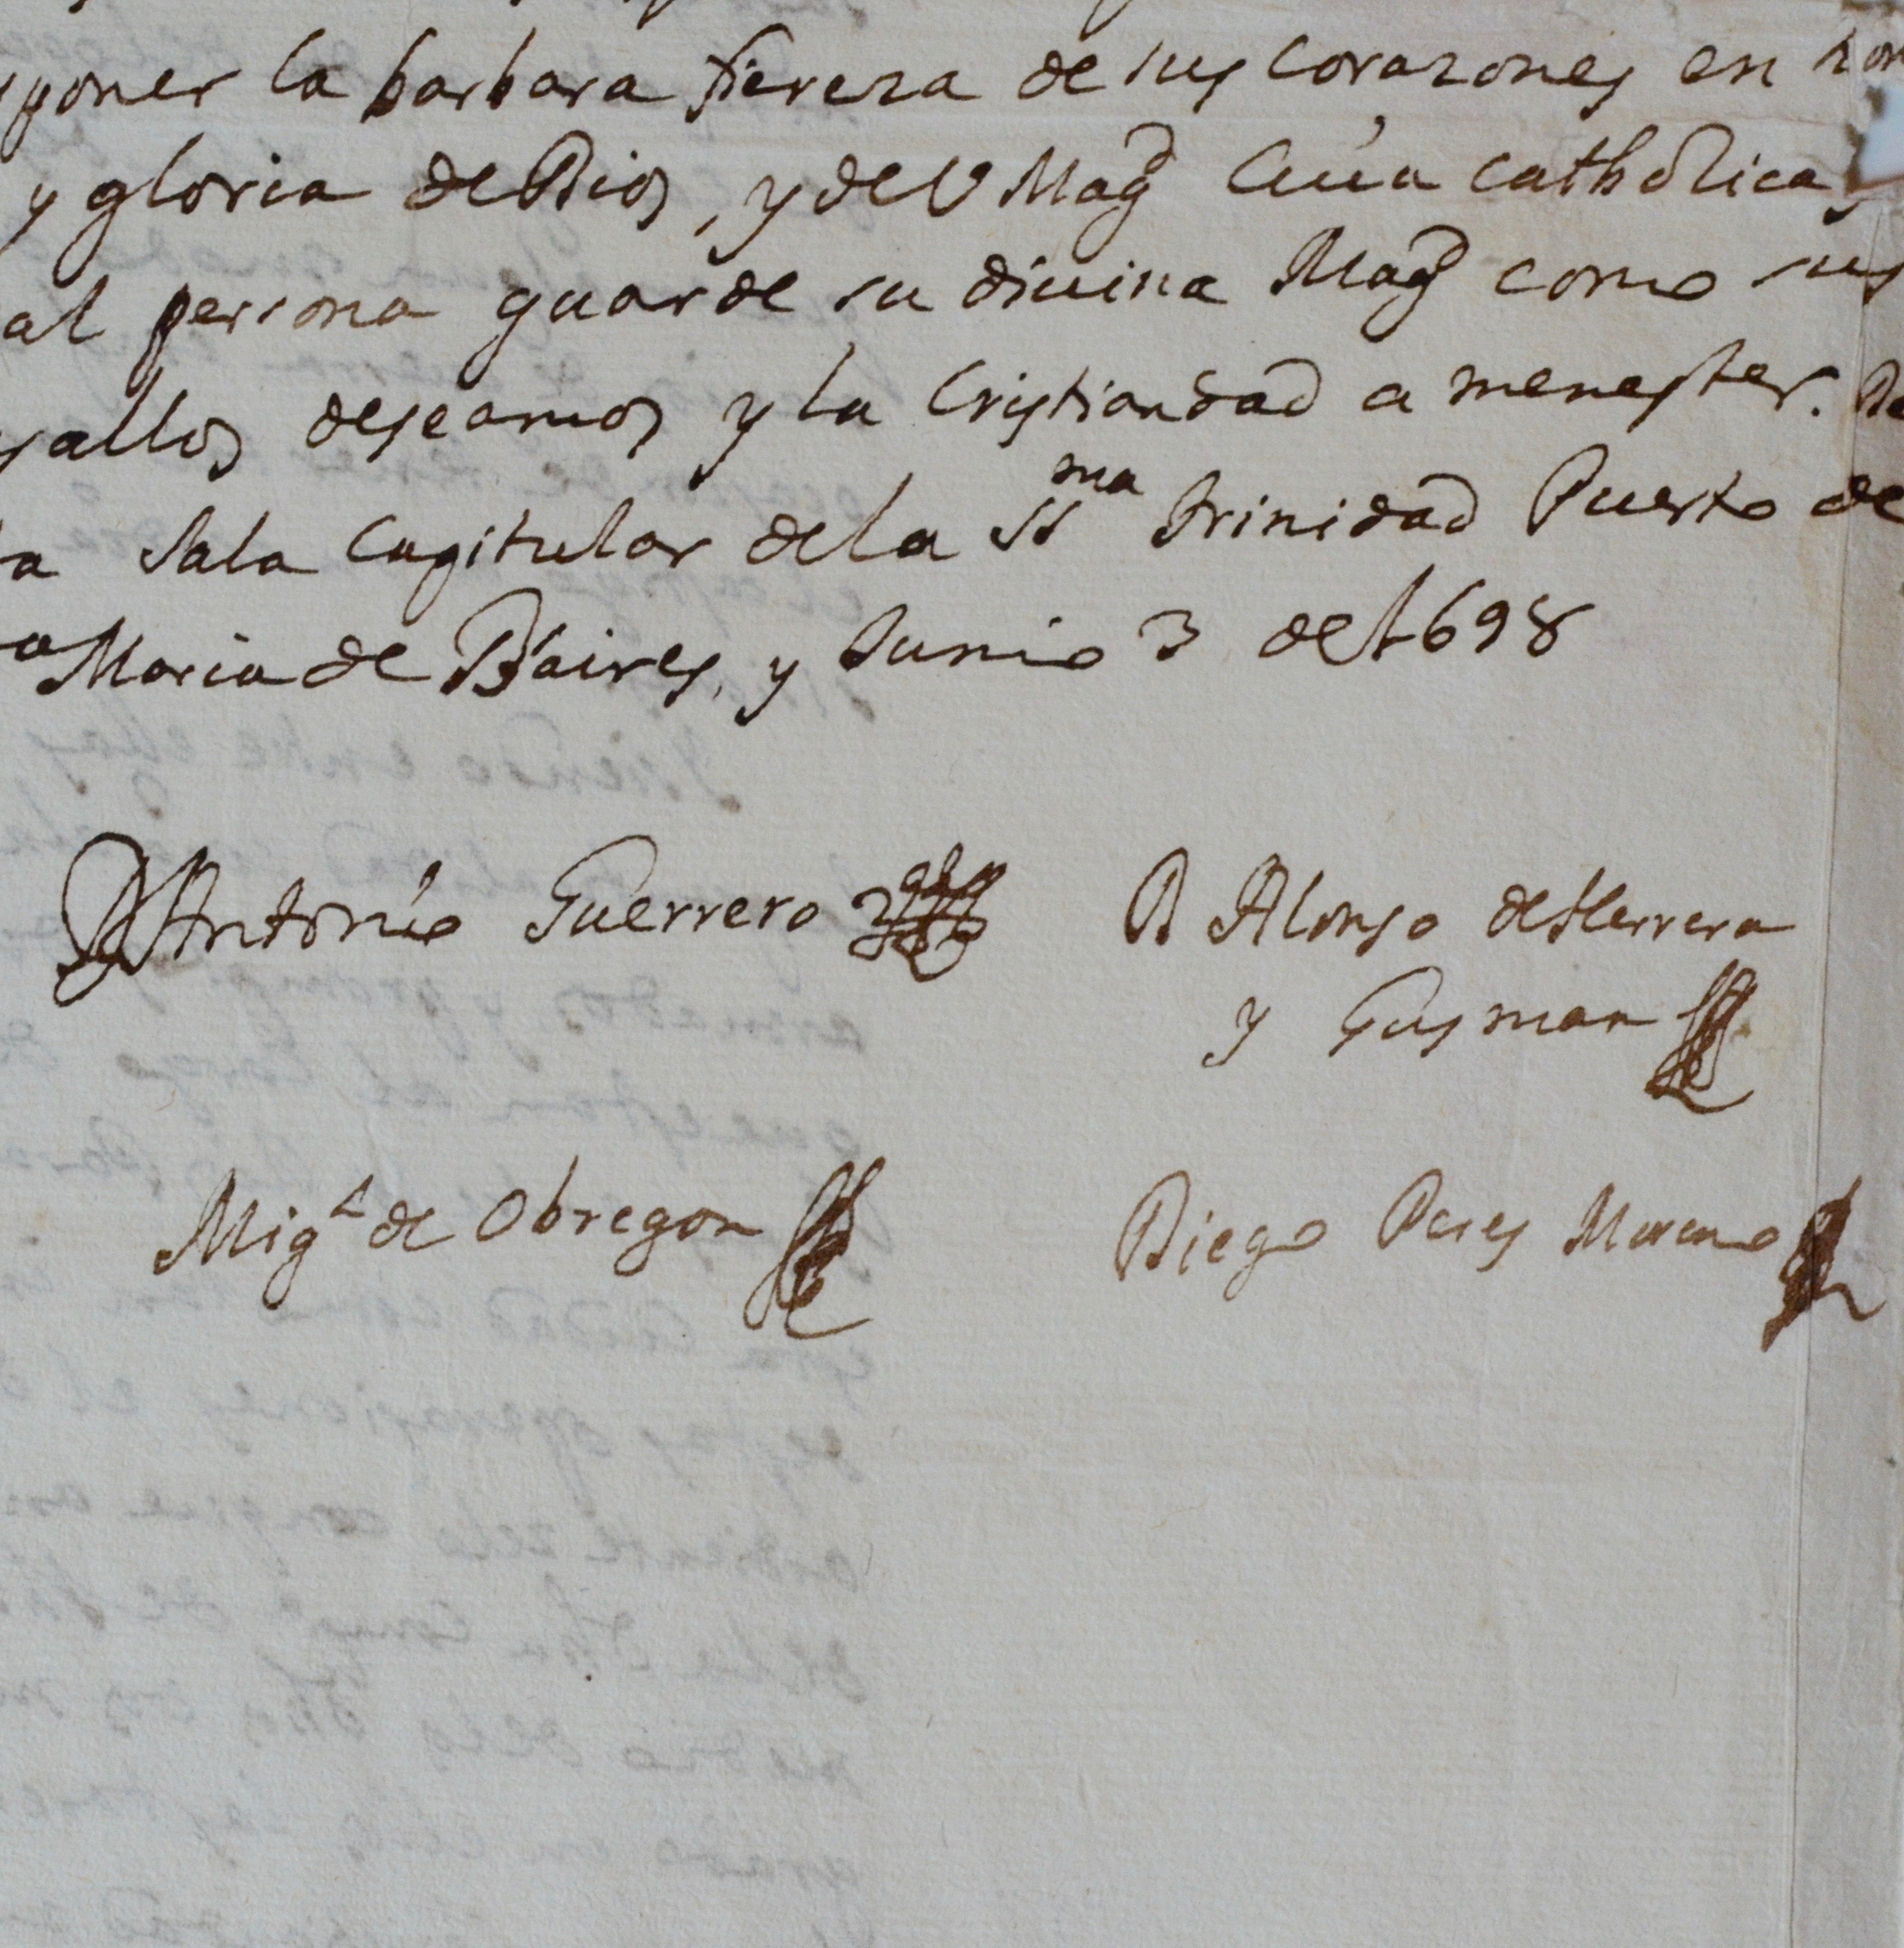 poner la barbara fiereza de sus corazones en hon
y gloria de Dios, y de V Magd Cuia catholica,
al persona guarde su diuina Magd como sus
sallos deseamos y la Cristiandad a menester. De
a Sala Capitular de la SSma Trinidad Puerto de
a Maria de Bs aires, y Junio 3 de 1698
D Antonio Guerrero
D Alonso de Herrera
y Gusman
Migl de Obregon
Diego Peres Moreno